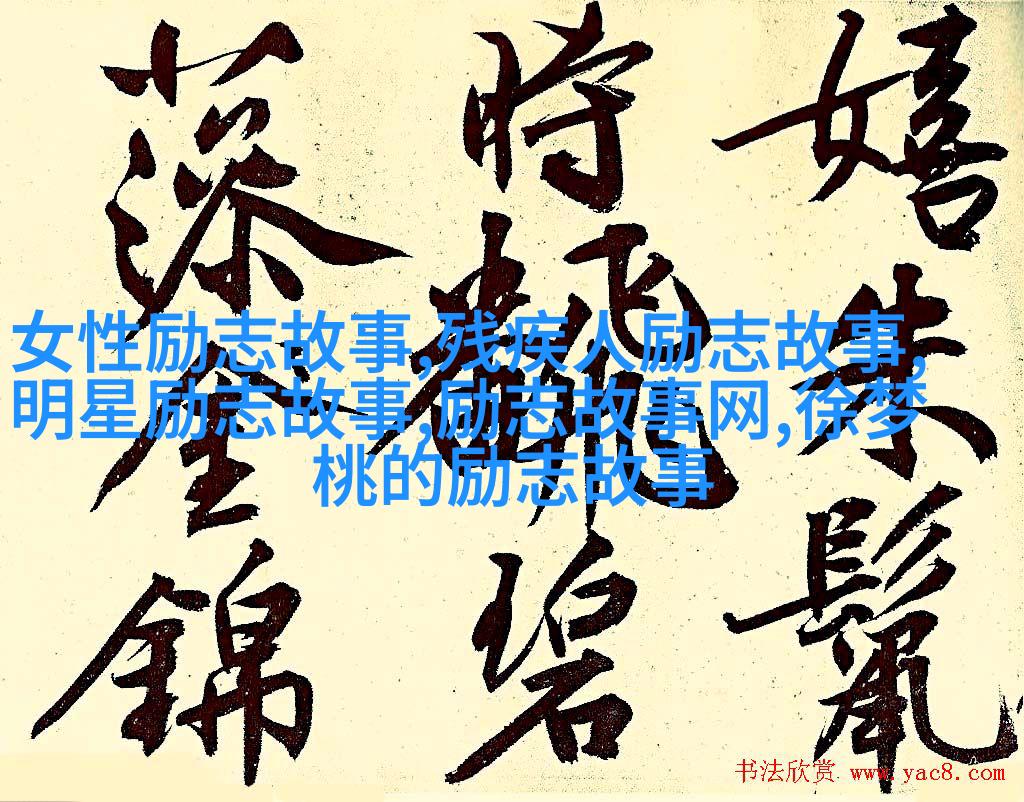 嬉朱鬣
時翻碧
藻金錦
女性励志故事,残疾人励志故事,
明星励志故事,励志故事网,徐梦
桃的励志故事
书法欣赏 www.yac8.com